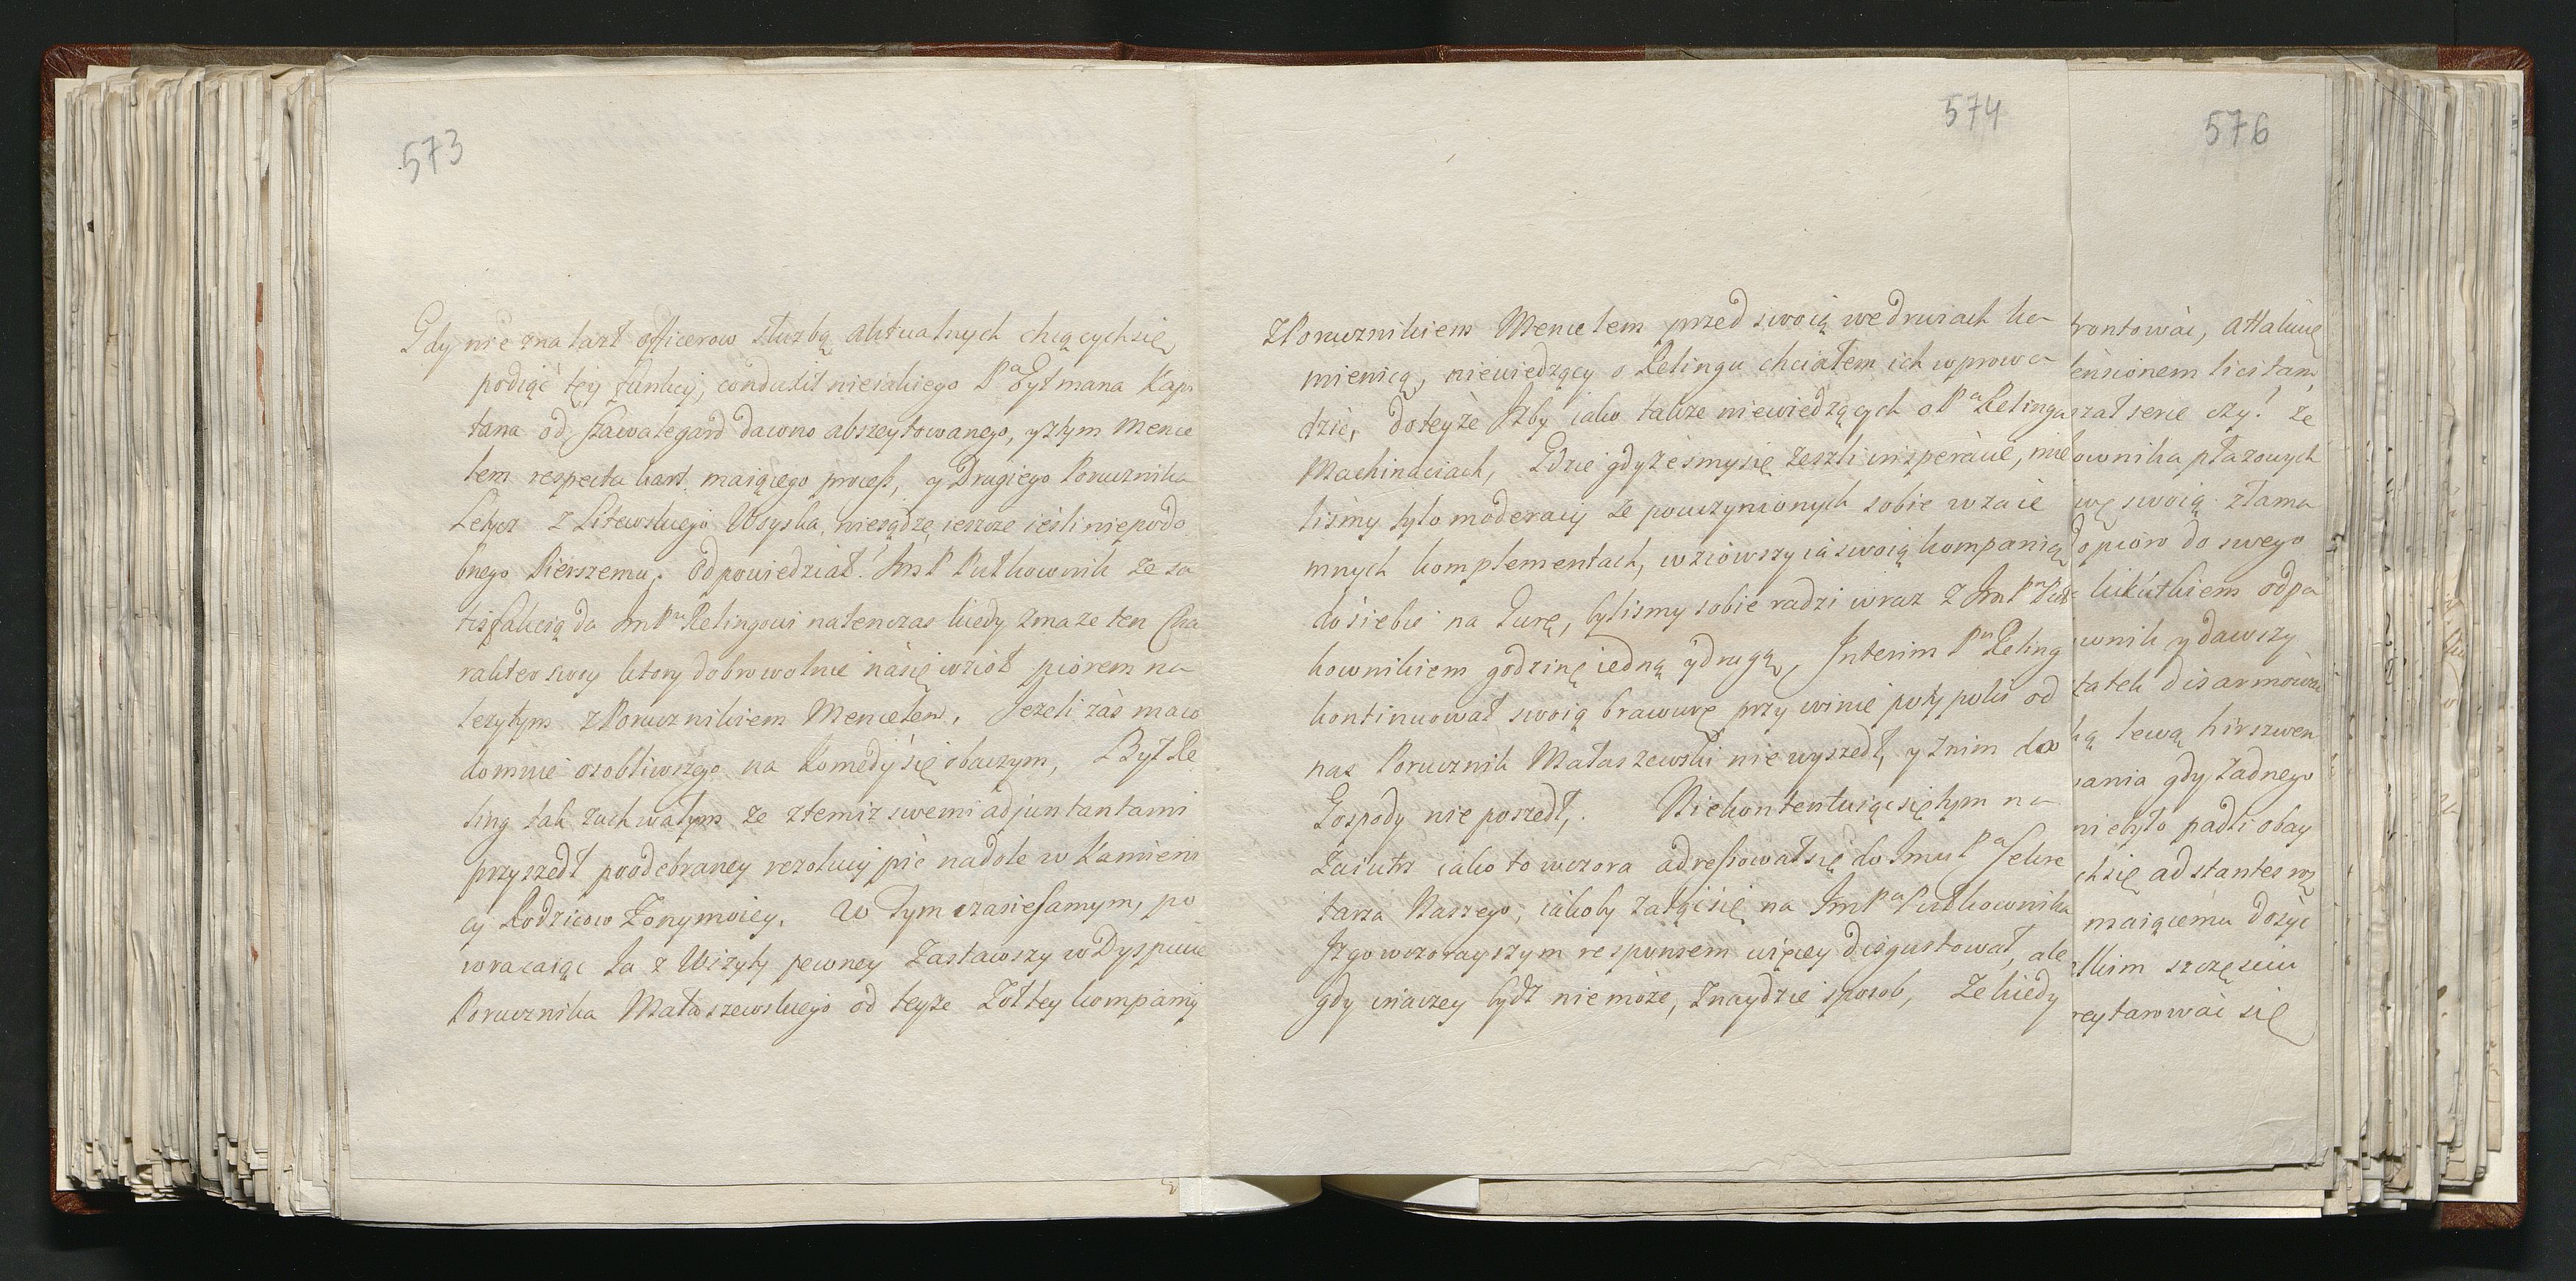 573
Gdy nie znalazł officerow służbą aktualnych chcących się
podiąć tęy funkcij, conduxit nieiakiego Pa Gytmana Kapi
tana od Gawalegard dawno abszeytowanego, y z tym Mence
lem respectu kart maiącego proceß, y Drugiego Porucznika
z Litewskiego Woyska, niesądzę ieszcze ieśli niepodo
bnego Pierszemu. Odpowiedział! JmP Pułkownik ze sa
tisfakcią da JmPu Kelingowi natenczas kiedy zmaze ten Cha
rakter swoy ktory dobrowolnie násię wzioł piorem na
lezytym z Porucznikiem Mencelem. Jezeli zàs ma co
domnie osobliwszego na Komedyi się obaczym, Był Ke
ling tak zuchwałym ze z temiz swemi adjuntantami
przyszedł poodebraney rezolucij pić nadole w Kamieni
cy Rodzicow Zony moiey. W Tym czasie samym, po
wracaiąc Ja z Wizyty pewney Zastawszy w Dyspucie
Porucznika Mataszewskiego od teyze Zółtey kompanij
574
z Porucznikiem Mencelem przed swoią we drwiach ka
mienicą, niewiedzący o Kelingu chciałem ich wprowa
dzić, do teyże Izby iako takze niewiedzących o Pa Kelinga
Machinaciach, Gdzie gdyżeśmy się zeszli insperàcie, mie
liśmy tylo moderacij że pouczynionych sobie wzaie
mnych komplementach, wziówszy iá swoią kompanią
do siebie na Gurę, bylismy sobie radzi wraz z JmPn Puł
kownikiem godzinę iedną y drugą, Interim Pn Keling
kontinuował swoią brawurę przy winie poty poki od
nas Porucznik Mataszewski nie wyszedł, y z nim do
Gospody nie poszedł. Niekontentuiąc się tym na
Zaiutrz iako to wczora adreßował się do Jmci Pa Sekre
tarza Naszego, iakoby zaląc się na JmPa Pułkownika
Iz go wczorayszym responsem więcey disgustował, ale
gdy inaczey bydz nie może, Znaydzie sposob, Ze kiedy
576
frontowáć, attakuię
ensionem licitam,
szał serie czy! że
ownika płazowych
wę swoią złama
Dopioro do swego
kikutkiem odpa
wnik y dawszy
tatek disarmowa
ką lewą hirszwen
ania gdy Zadnego
niebyło padli obay
ch się adstantes
maiącemu dosyć
tkim szczęsciu
reytarowáć się